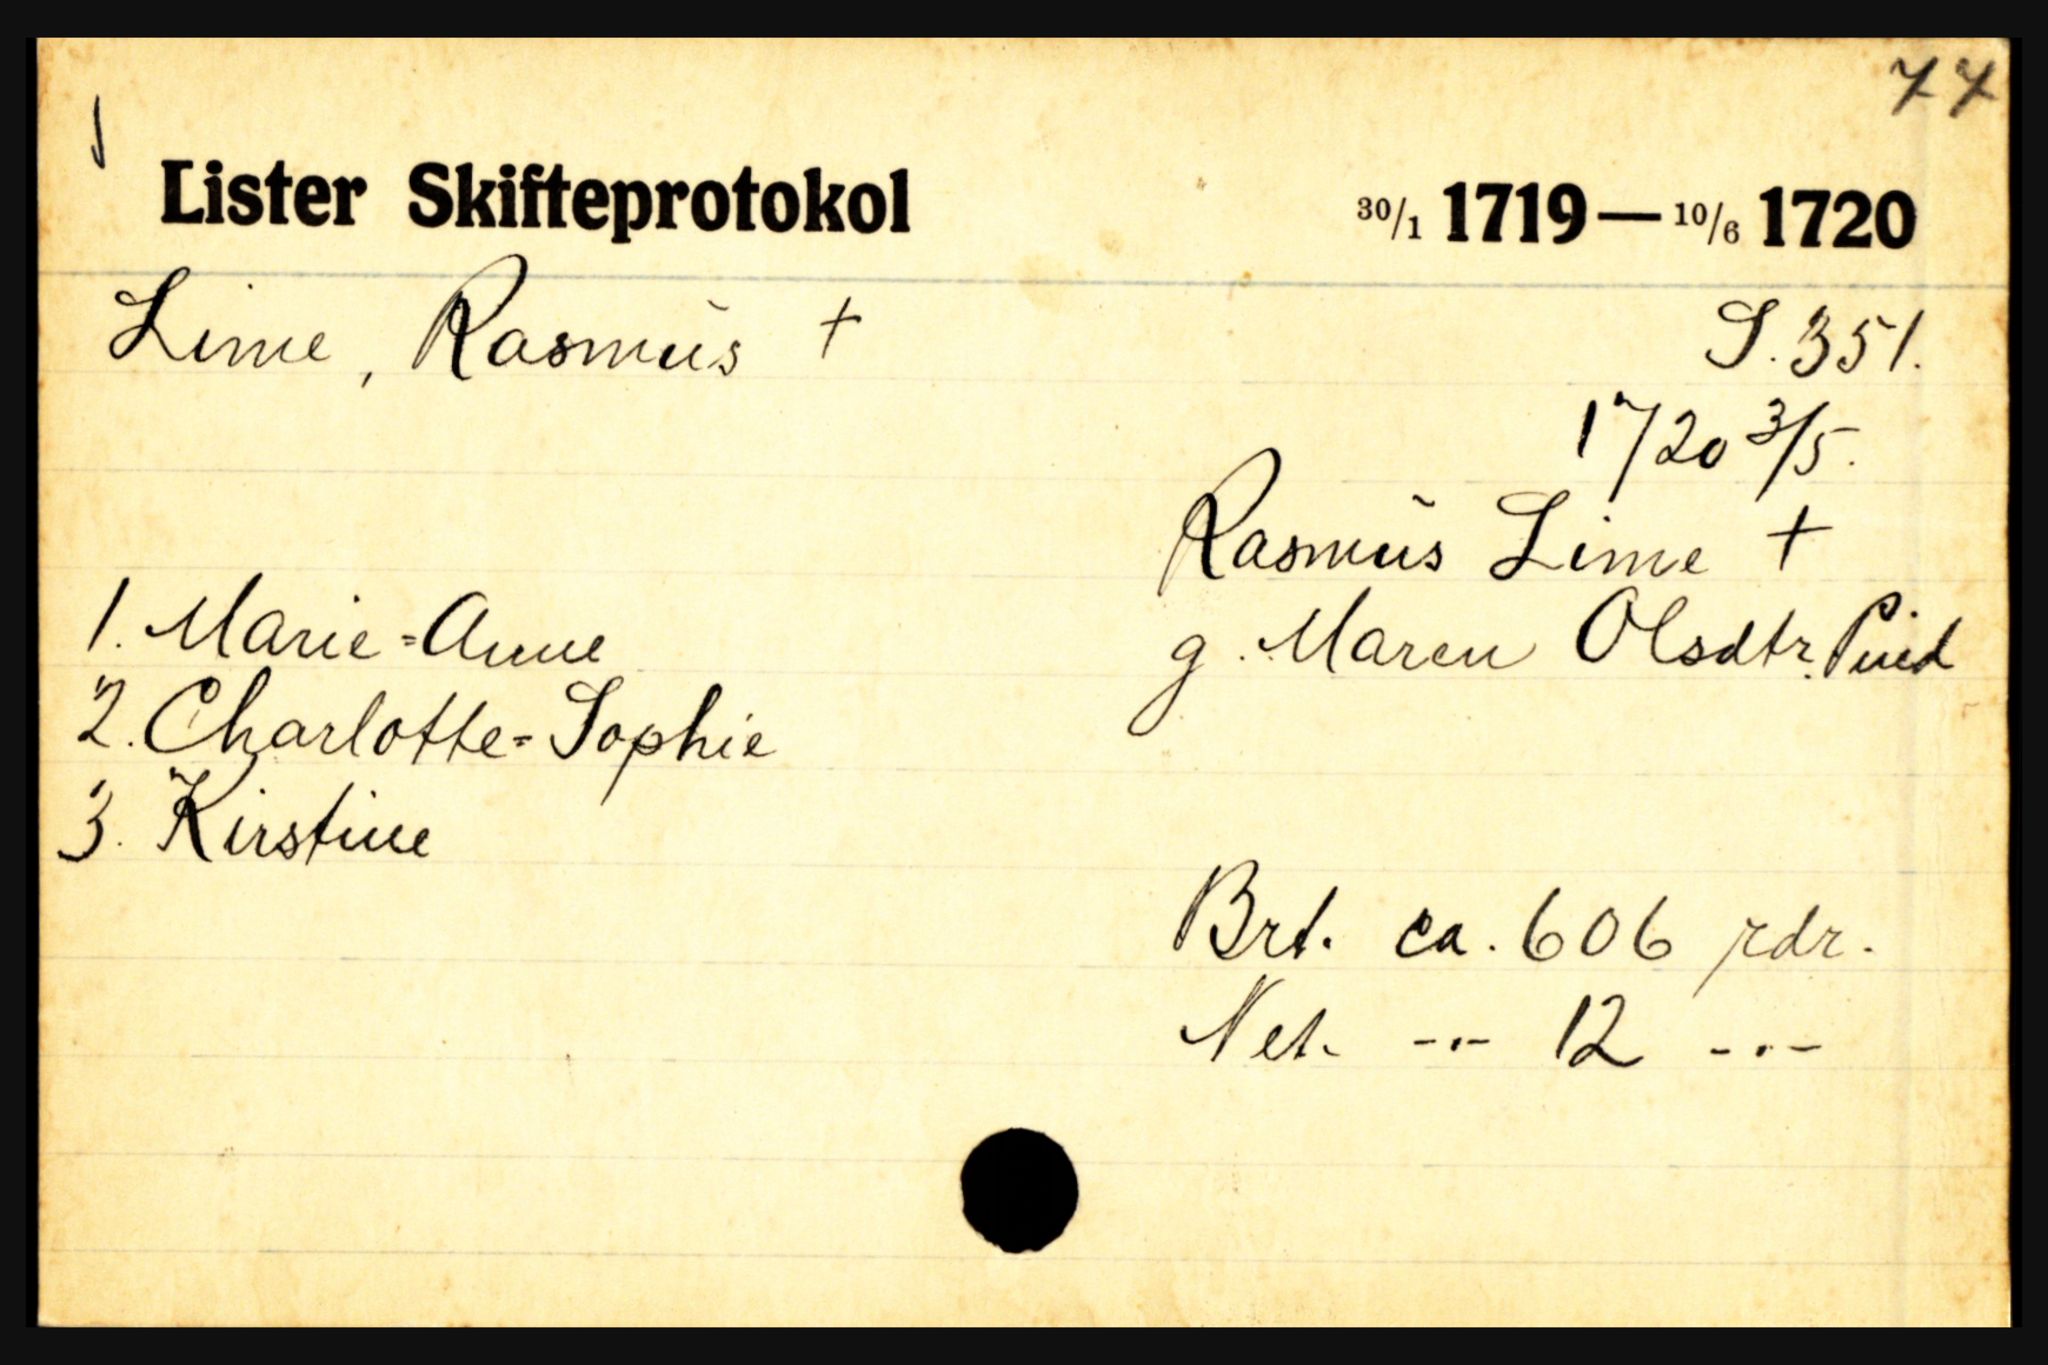 77
Lister Skifteprotokol 30/1 1719 — 10/6 1720
Lime, Rasmus +
S. 351.
1720 3/5.
Rasmus Lime +
g. Maren Olsdtr.
1. Marie=Anne
2. Charlotte=Sophie
3. Kirstine
Brt. ca. 606 rdr.
Net. -"- 12 -"-